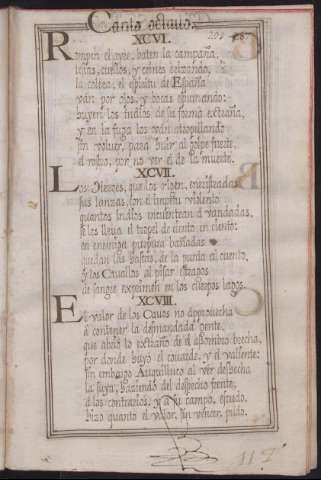 Canto octauo.
XCVI.
Rompen el ayre, baten la campaña,
colas, cuellos, y crines
la colera, el espiritu de España
van por ojos, y bocas espumando:
huyen los Indios de su forma extraña,
y en la fuga los van atropellando
sin voluer, para huir al golpe fuerte,
el rostro, por no ver el de la muerte.
XCVII.
Los Heroes, que los rigen, enristradas
sus lanzas, con el impetu violento
quantos Indios encuentran a vandadas,
se los lleua el tropel de ciento en ciento:
en enemiga purpura bañadas
quedan las hastas, de la punta al cuento,
y los Cauallos al pisar estragos
de sangre exprimen en los cuerpos lagos.
XCVIII.
El valor de los Cauos no aprouecha
a contener la desmandada gente,
que abrió lo extraño de el assombro brecha,
por donde huyó el couarde, y el valiente:
sin embargo Auquilluco al ver deshecha
la suya, haziendo del despecho frente,
a los contrarios, y a su campo, escudo,
hizo quanto el valor, sin vencer, pudo.
117